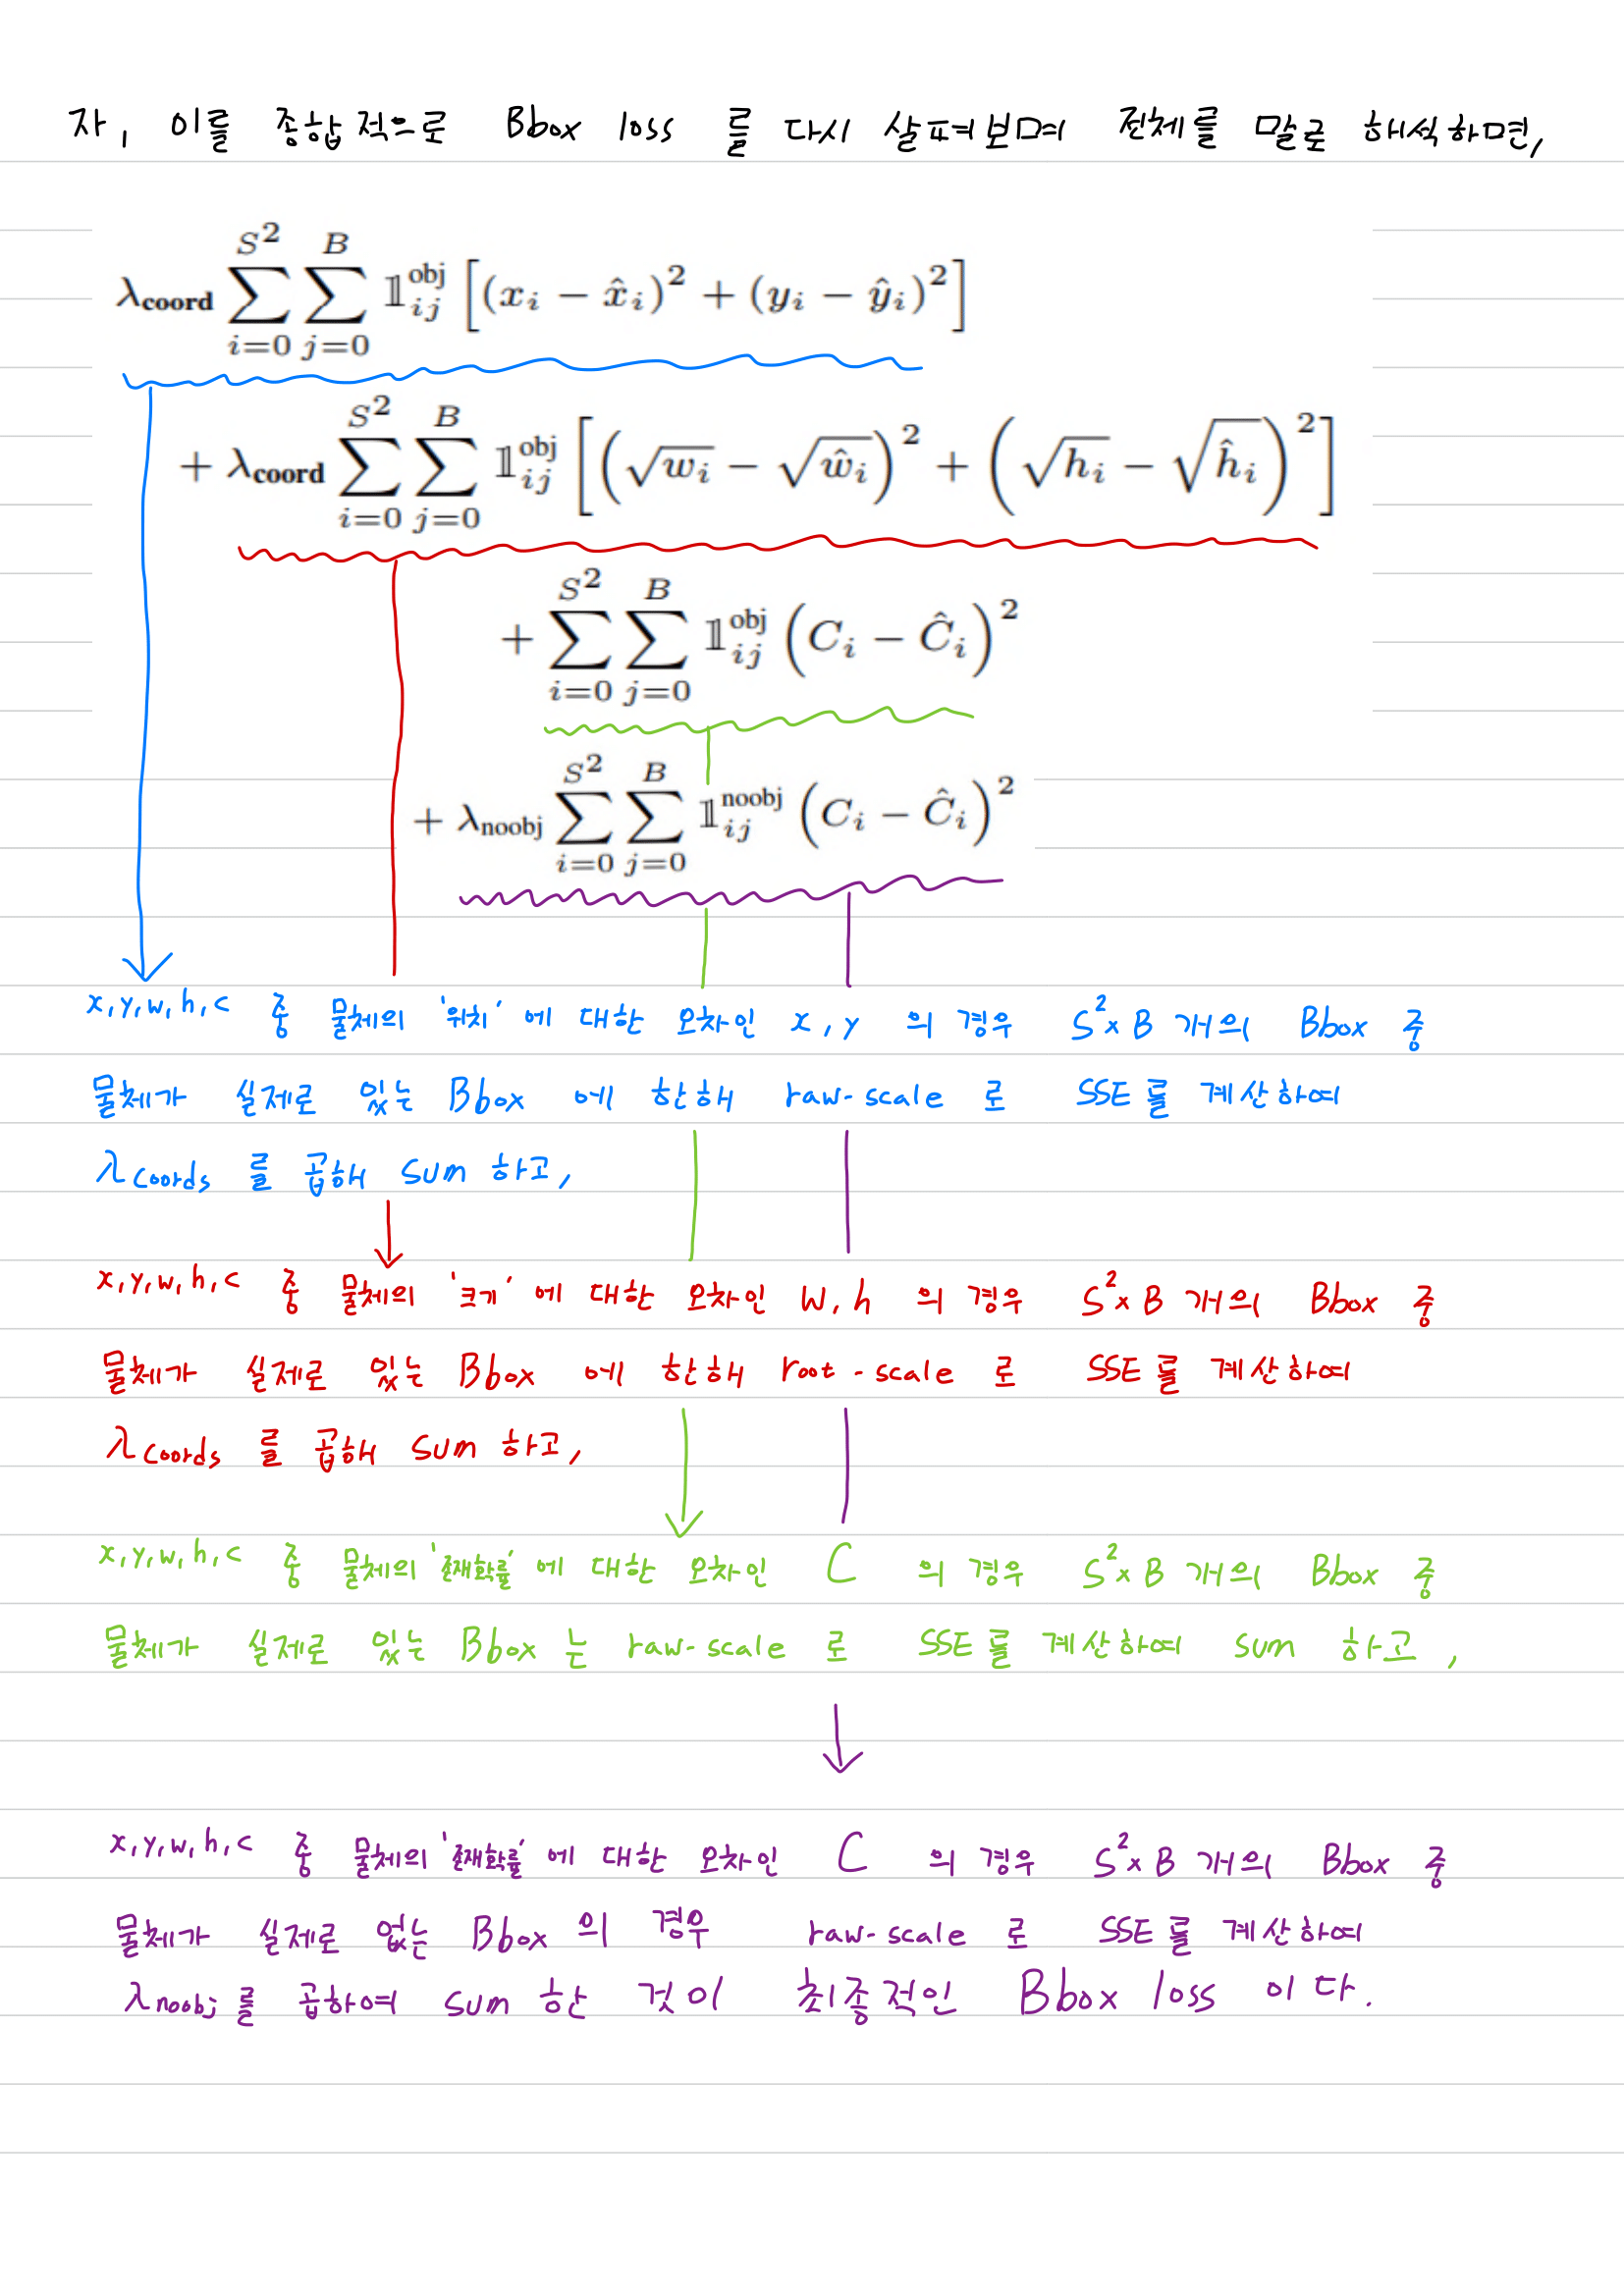 자, 이를 종합적으로 Bbox loss 를 다시 살펴보며 전체를 말로 해석하면,
λcoord ∑_{i=0}^{S²} ∑_{j=0}^{B} 𝟙_{ij}^{obj} [(x_i − x̂_i)² + (y_i − ŷ_i)²]
+ λcoord ∑_{i=0}^{S²} ∑_{j=0}^{B} 𝟙_{ij}^{obj} [(√w_i − √ŵ_i)² + (√h_i − √ĥ_i)²]
+ ∑_{i=0}^{S²} ∑_{j=0}^{B} 𝟙_{ij}^{obj} (C_i − Ĉ_i)²
+ λnoobj ∑_{i=0}^{S²} ∑_{j=0}^{B} 𝟙_{ij}^{noobj} (C_i − Ĉ_i)²
x,y,w,h,c 중 물체의 '위치'에 대한 오차인 x,y 의 경우 S²×B 개의 Bbox 중
물체가 실제로 있는 Bbox 에 한해 raw-scale 로 SSE를 계산하여
λcoords 를 곱해 sum 하고,
x,y,w,h,c 중 물체의 '크기'에 대한 오차인 w,h 의 경우 S²×B 개의 Bbox 중
물체가 실제로 있는 Bbox 에 한해 root-scale 로 SSE를 계산하여
λcoords 를 곱해 sum 하고,
x,y,w,h,c 중 물체의 '존재확률'에 대한 오차인 C 의 경우 S²×B 개의 Bbox 중
물체가 실제로 있는 Bbox 는 raw-scale 로 SSE를 계산하여 sum 하고,
x,y,w,h,c 중 물체의 '존재확률'에 대한 오차인 C 의 경우 S²×B 개의 Bbox 중
물체가 실제로 없는 Bbox 의 경우 raw-scale 로 SSE를 계산하여
λnoobj 를 곱하여 sum 한 것이 최종적인 Bbox loss 이다.